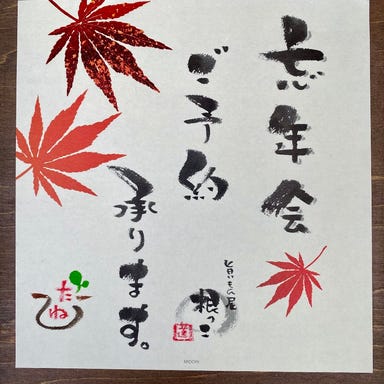 忘年会
ご予約
承ります。
旨いもん屋
根っこ
たね